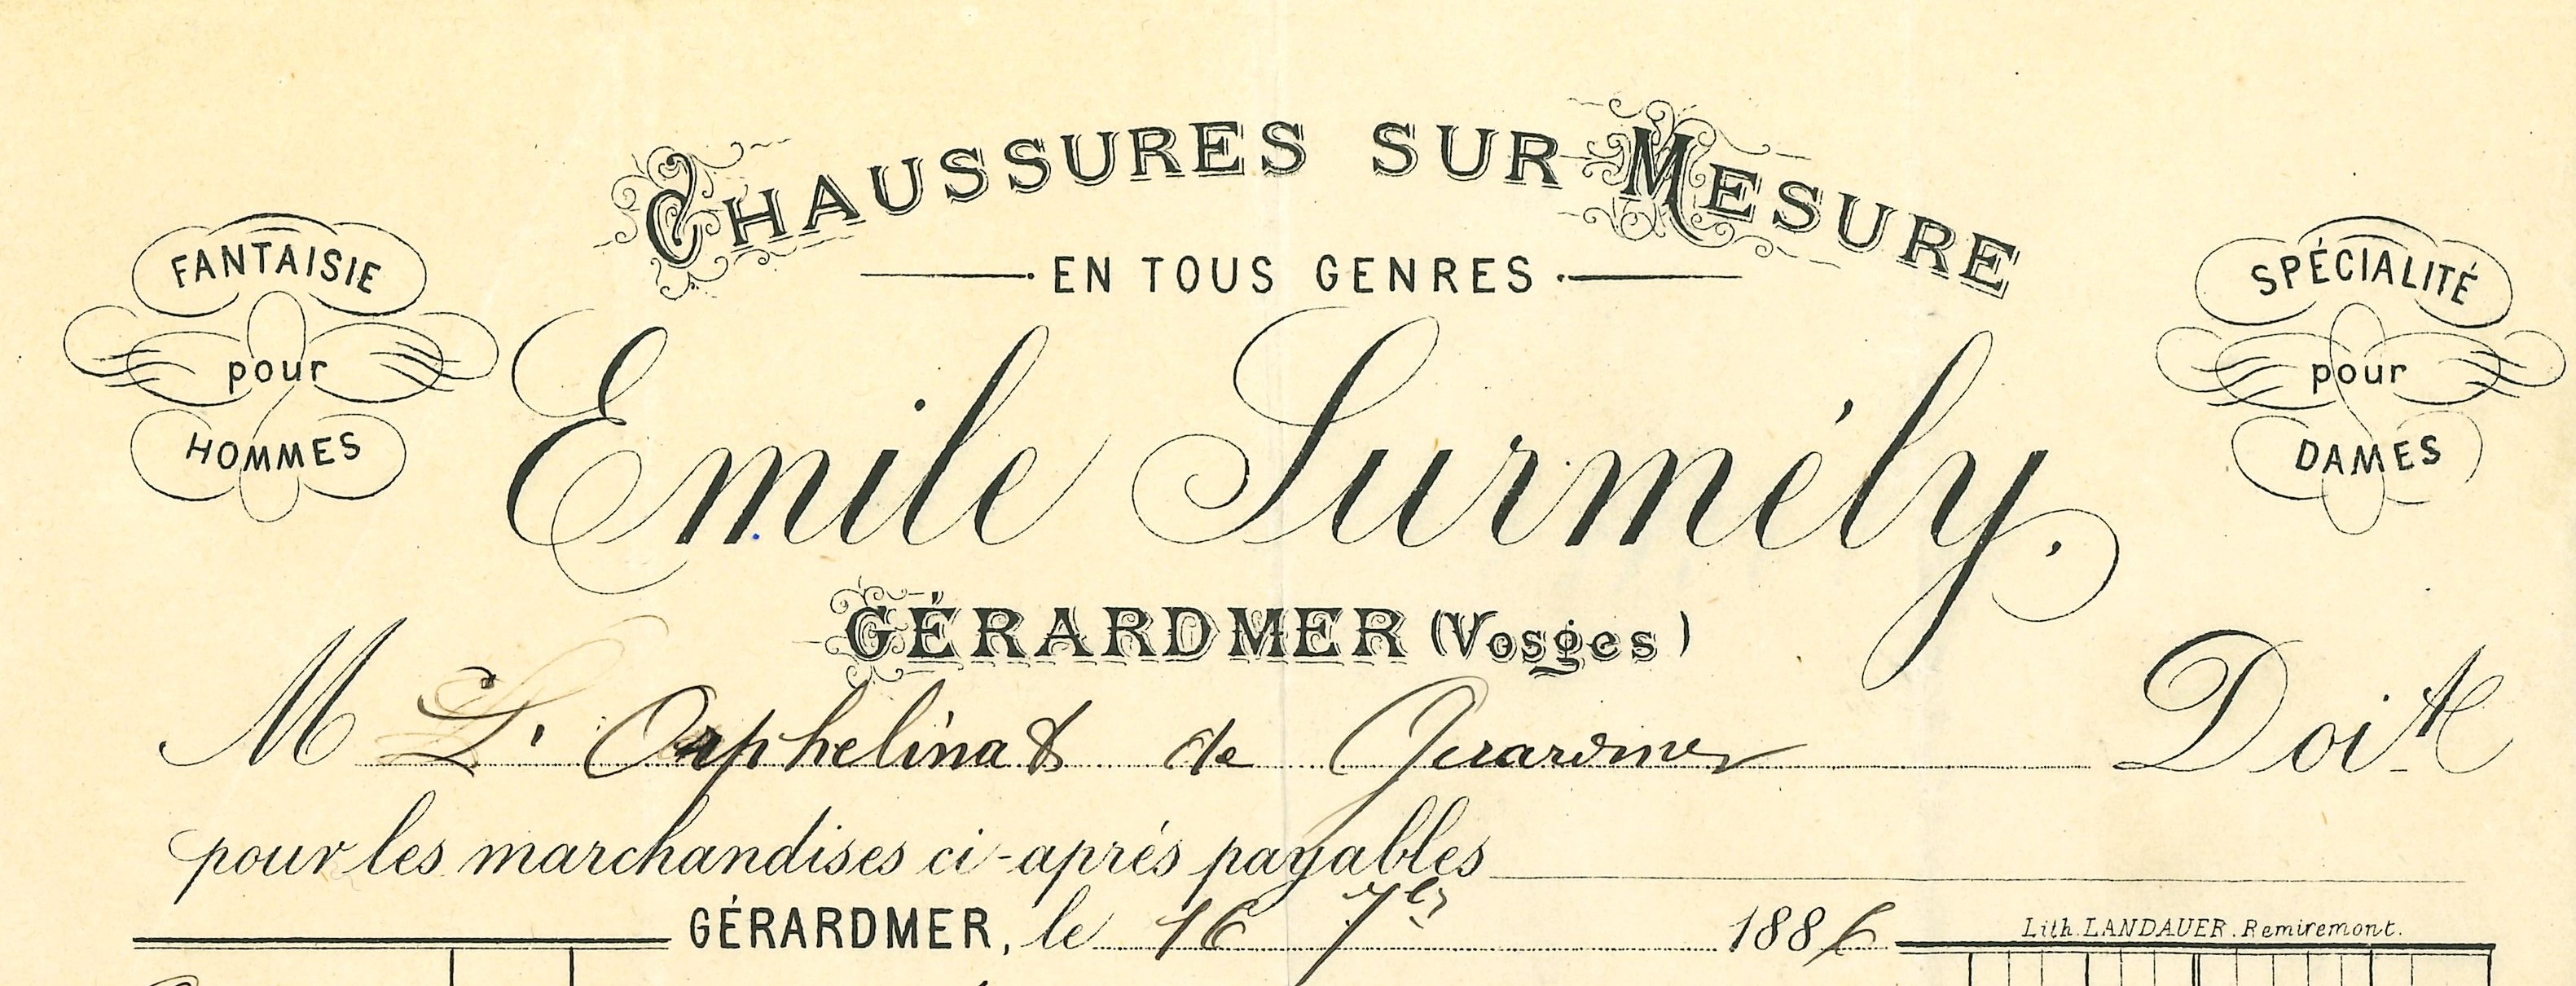 CHAUSSURES SUR MESURE
EN TOUS GENRES
FANTAISIE
pour
HOMMES
SPÉCIALITÉ
pour
DAMES
Emile Surmély.
GÉRARDMER (Vosges)
M L'Orphelinat de Gerardmer Doit
pour les marchandises ci-après payables
GÉRARDMER, le 16 7bre 1886
Lith. LANDAUER. Remiremont.